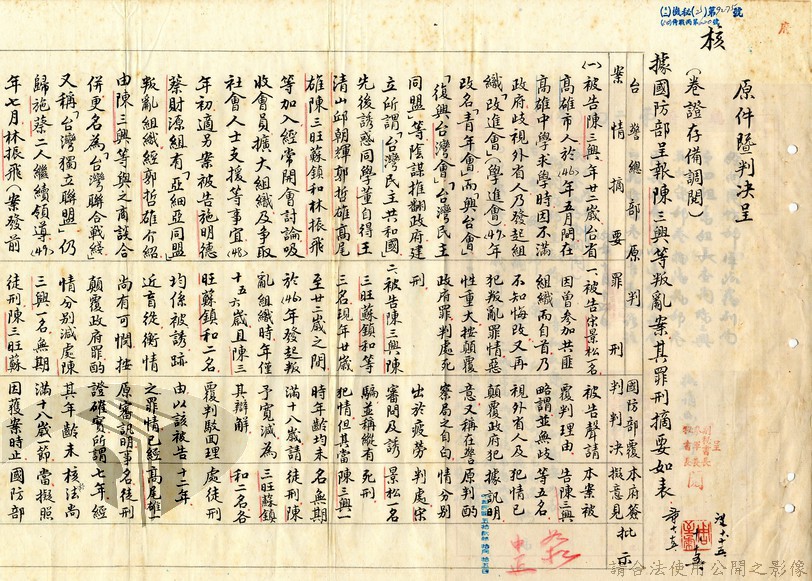 核
原件曁判决呈
(卷證存備調閱)
據國防部呈報陳三興等叛亂案其罪刑摘要如表
案情摘要
台警總部原判
罪刑
國防部覆判判决
本府簽擬意見
批示
(一)被告陳三興年廿二歲台省
高雄市人於(46)年五月間在
高雄中學求學時因不滿
政府歧視外省人乃發起組
織「學進會」(49)年
改名「青年會」而與
「復興台灣會」「台灣民主
同盟」等陰謀推翻政府建
立所謂「台灣民主共和國」
先後誘惑同學董自得王
清山邱朝輝郭哲雄高尾
雄陳三旺蘇鎮和林振飛
等加入經常開會討論吸
收會員擴大組織及爭取
社會人士支援等事宜(48)
年初適另案被告施明德
蔡財源組有「亞細亞同盟」
叛亂組織經郭哲雄介紹
由陳三興等與之商談合
併更名為「台灣聯合戰線」
又稱「台灣獨立聯盟」仍
歸施蔡二人繼續領導(49)
年七月林振飛(案發前
一被告宋景松一名
因曾參加共匪
組織而自首乃
不知悔改又再
犯叛亂罪情惡
性重大按顛覆
政府罪判處死
刑
二被告陳三興陳
三旺蘇鎮和等
三名現年廿歲
至廿二歲之間
於(46)年發起叛
亂組織時年僅
十五六歲且陳三
旺蘇鎮和二名
均係被誘跡
近盲從衡情
尚有可憫按
顛覆政府罪酌
情分別減處陳
三興一名無期
徒刑陳三旺蘇
被告聲請
覆判理由
略謂並無歧
視外省人及
顛覆政府犯
意又稱在警
察局之自白
出於疲勞
審問及誘
騙並稱縱有
犯情但其當
時年齡均未
滿十八歲請
予寬減為
其辯解
覆判駁回理
由以該被告
之罪情已經高尾雄
原審訊明事
證確實所謂
其年齡未
滿十八歲一節
因獲案時止
本案被
告陳三興
等五名
犯情已
據訊明
原判酌
情分別
判處宋
景松一名
死刑
陳三興一
名無期
徒刑陳
三旺蘇鎮
和二名各
處徒刑
十二年
名徒刑
七年經
核法尚
當擬照
國防部
中正
請合法使用公開之影像